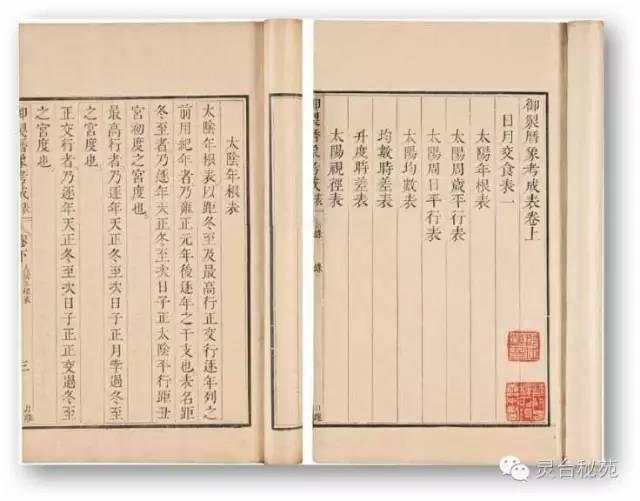 御製曆象考成表卷上
日月交食表一
太陽年根表
太陽周歲平行表
太陽周日平行表
太陽均數表
均數時差表
升度時差表
太陽視徑表
御製曆象考成表 錄
太陰年根表
太陰年根表以距冬至及最高行正交行逐年列之
前用紀年者乃雍正元年後逐年之干支也表名距
冬至者乃逐年天正冬至次日子正太陰平行距丑
宮初度之宮度也
最高行者乃逐年天正冬至次日子正月孛過冬至
之宮度也
正交行者乃逐年天正冬至次日子正正交過冬至
之宮度也
御製曆象考成表 卷下 三
灵台秘苑